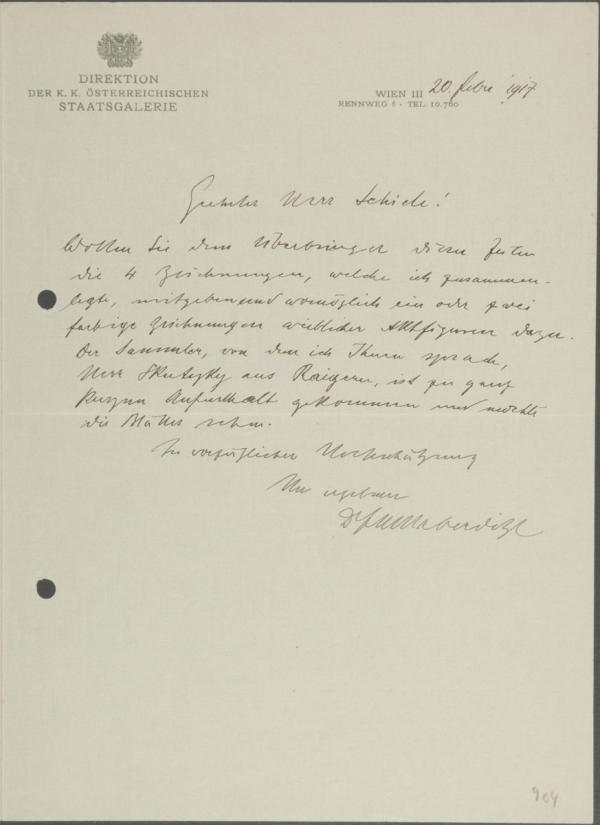 DIREKTION
DER K. K. ÖSTERREICHISCHEN
STAATSGALERIE
WIEN III 20. Febr. 1917
RENNWEG 6 · TEL. 10.760
Geehrter Herr Schiele!
Wollen Sie dem Überbringer dieser Zeilen
die 4 Zeichnungen, welche ich zusammen-
legte, mitgeben und womöglich ein oder zwei
farbige Zeichnungen weiblicher Aktfiguren dazu.
Der Sammler, von dem ich Ihnen sprach,
Herr Skutezky aus Raigern, ist zu ganz
kurzem Aufenthalt gekommen und möchte
die Blätter sehen.
In vorzüglicher Hochschätzung
Ihr ergebener
Dr FMHaberditzl
904